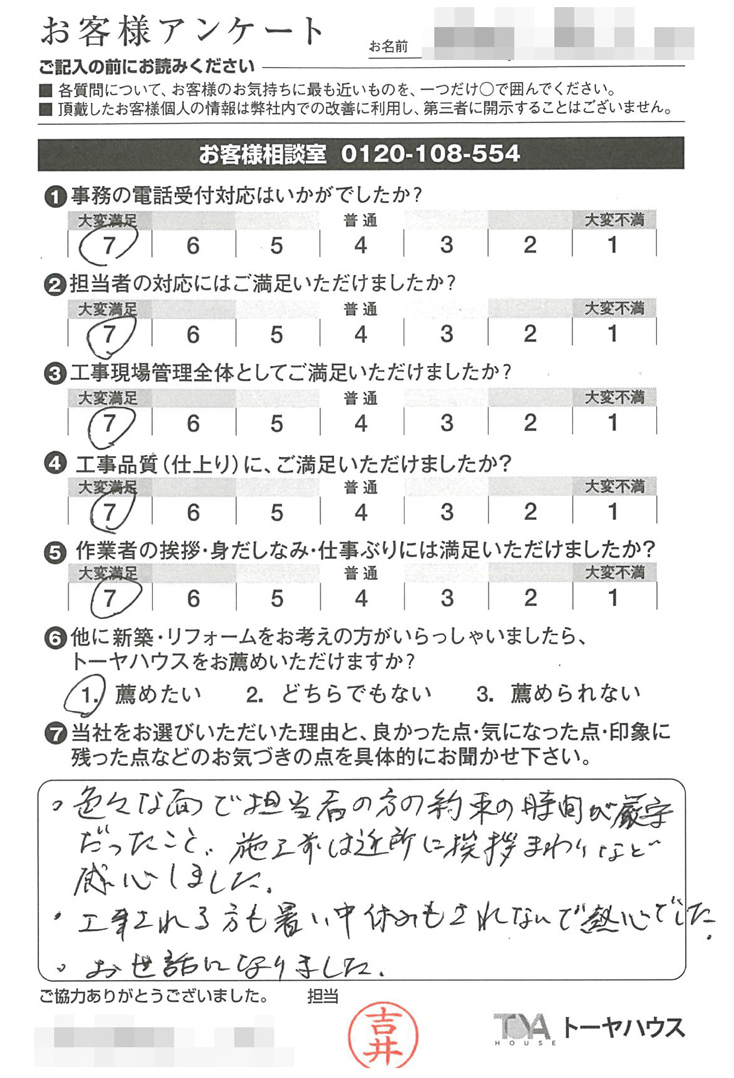 お客様アンケート
お名前
ご記入の前にお読みください
■ 各質問について、お客様のお気持ちに最も近いものを、一つだけ○で囲んでください。
■ 頂戴したお客様個人の情報は弊社内での改善に利用し、第三者に開示することはございません。
お客様相談室 0120-108-554
❶事務の電話受付対応はいかがでしたか?
大変満足 普通 大変不満
7 6 5 4 3 2 1
❷担当者の対応にはご満足いただけましたか?
大変満足 普通 大変不満
7 6 5 4 3 2 1
❸工事現場管理全体としてご満足いただけましたか?
大変満足 普通 大変不満
7 6 5 4 3 2 1
❹ 工事品質(仕上り)に、ご満足いただけましたか?
大変満足 普通 大変不満
7 6 5 4 3 2 1
❺ 作業者の挨拶・身だしなみ・仕事ぶりには満足いただけましたか?
大変満足 普通 大変不満
7 6 5 4 3 2 1
❻他に新築・リフォームをお考えの方がいらっしゃいましたら、
トーヤハウスをお薦めいただけますか?
1. 薦めたい 2. どちらでもない 3. 薦められない
❼当社をお選びいただいた理由と、良かった点・気になった点・印象に
残った点などのお気づきの点を具体的にお聞かせ下さい。
。色々な面で担当者の方の約束の時間が厳守
だったこと、施工前は近所に挨拶まわりなど
感心しました。
・工事される方も暑い中休みもされないで熱心でした。
。お世話になりました。
ご協力ありがとうございました。 担当
吉井
TOYA HOUSE トーヤハウス